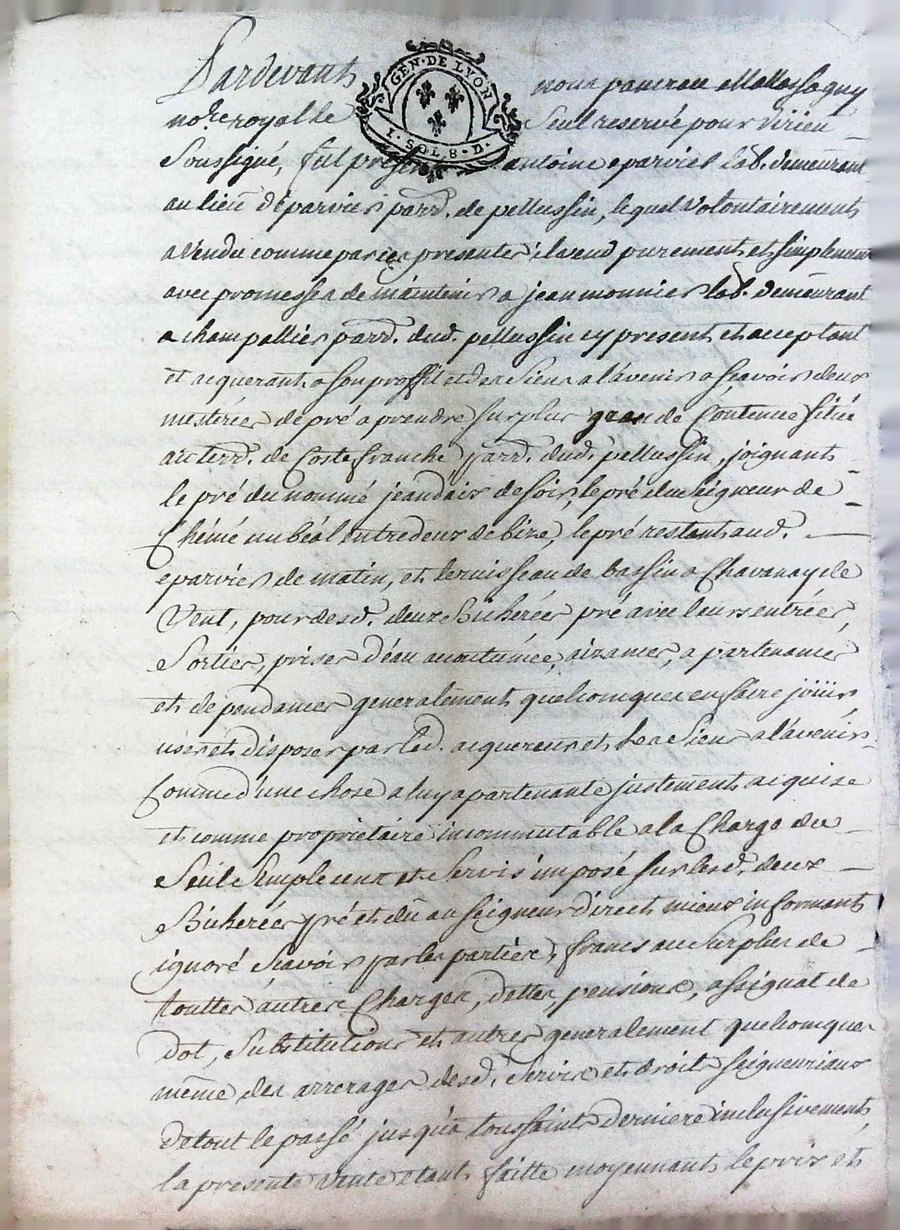 Pardevant nous
no.re royal Seul reservé pour Virieu
GEN·DE LYON
1·SOL·8·D·
Soussigné, fut present antoine eparvier lab. demeurant
au lieu d'éparvier parr. de pellussin, lequel volontairement
a Vendu comme par ces presentes il vend purement et simplement
avec promesses de maintenir a jean monnier lab. demeurant
a champallier parr. dud. pellussin cy present et acceptant
et acquerant a son proffit et des siens a l'avenir a sçavoir deux
mesterées de pré a prendre sur plus grande Contenue situé
au terr. de Coste franche parr. dud. pellussin, joignant
le pré du nommé de soir, le pré du seigneur de
un béal entredeux de bize, le pré restant aud.
eparvier de matin, et le ruisseau de bassin a Chavanay de
Vent, pour desd. deux Bicherées pré avec leurs entrées,
Sorties, prises d'éau acoutumée, aizances, apartenances
et dependances generalement quelconques en faire joüir
user et disposer par led. acquereur et les siens a l'avenir
Comme d'une chose a luy apartenante justement acquise
et comme proprietaire incommutable a la Charge du
Seul Simple cens et Servis imposé sur lesd. deux
Bicherées pré et dû au seigneur direct mieux informant
ignoré sçavoir par les parties, francs au Surplus de
touttes autres Charges, dettes, pensions, assignat de
dot, Substitutions et autres generalement quelconques
même des arrerages desd. Servis et droits seigneuriaux
de tout le passé jusqu'a toussaints derniere inclusivement
la presente vente etant faitte moyennant le prix et